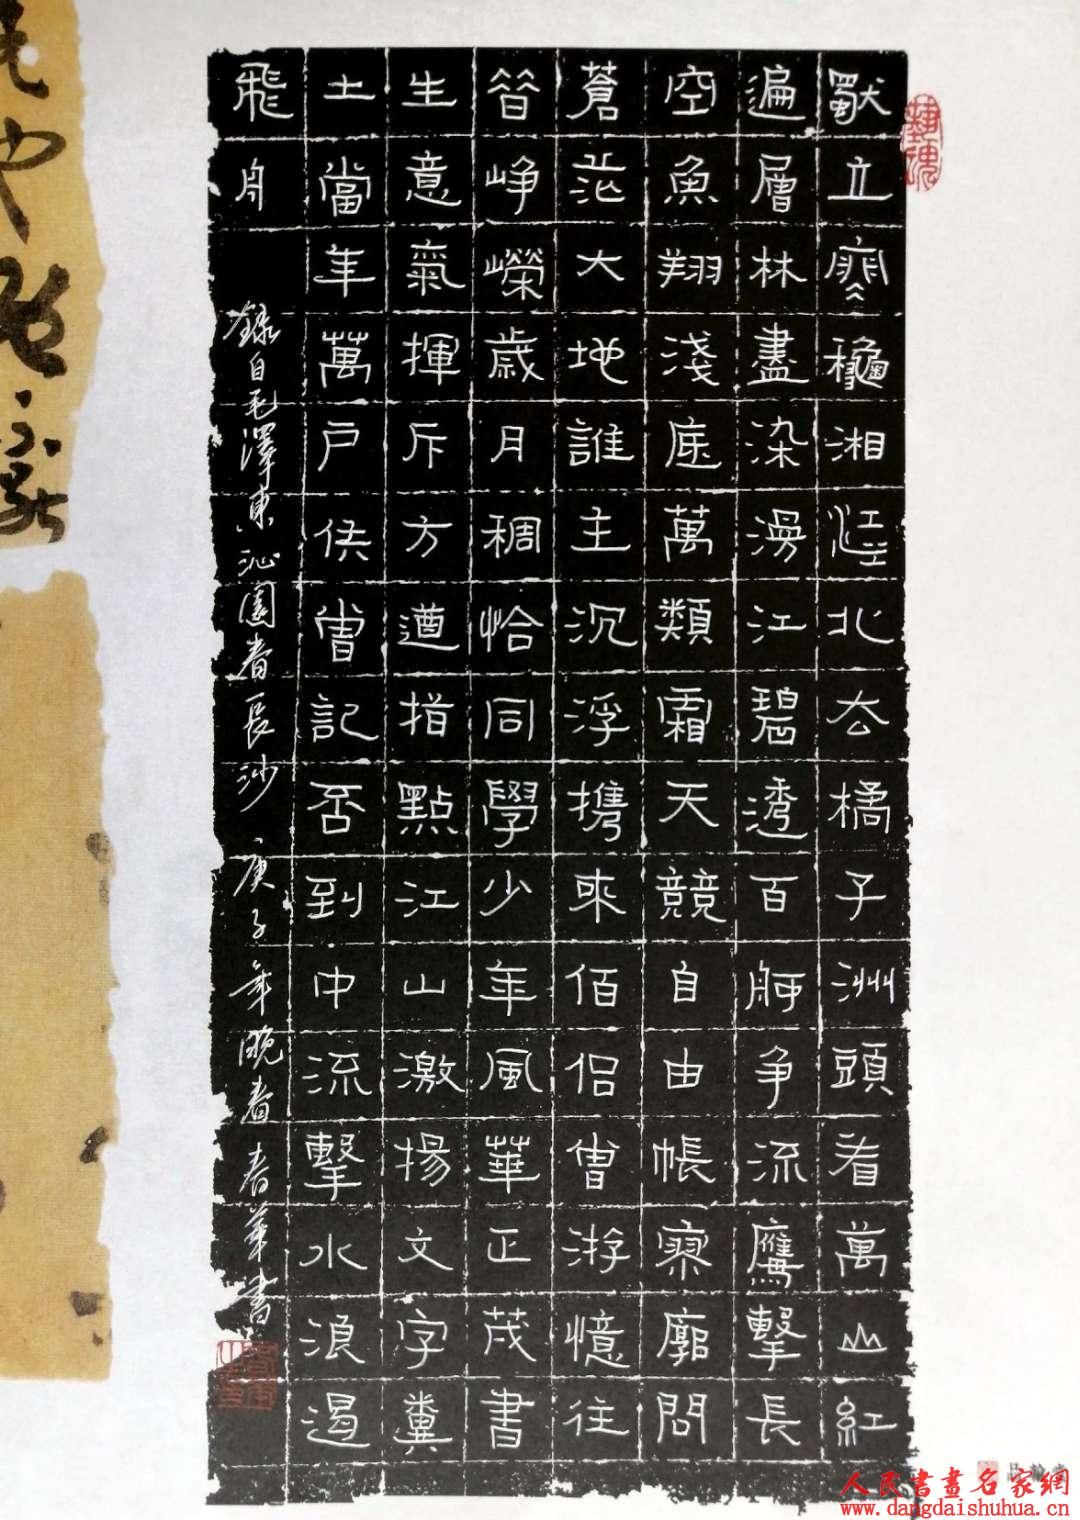 獨立寒龝湘江北去橘子洲頭看萬山紅
遍層林盡染漫江碧透百舸争流鷹擊長
空魚翔淺底萬類霜天競自由帳寥廓問
蒼茫大地誰主沉浮携来佰侣曾游憶往
昔峥嶸歲月稠恰同學少年風華正茂書
生意氣揮斥方遒指點江山激揚文字糞
土當年萬户侯曾記否到中流擊水浪遏
飛舟
録自毛澤東沁園春長沙 庚子年晚春春華書
人民書畫名家網
www.dangdaishuhua.cn